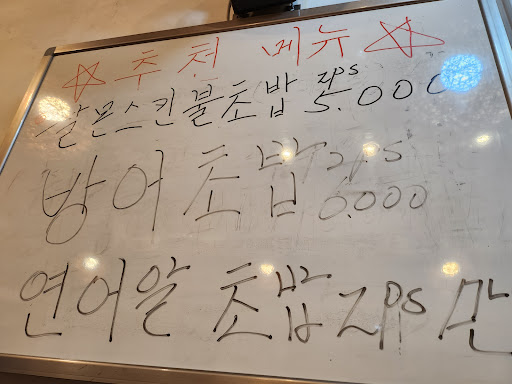 ☆추천 메뉴☆
살몬스킨불초밥 2ps 5.000
방어초밥 2ps 6.000
연어알 초밥 2ps 만